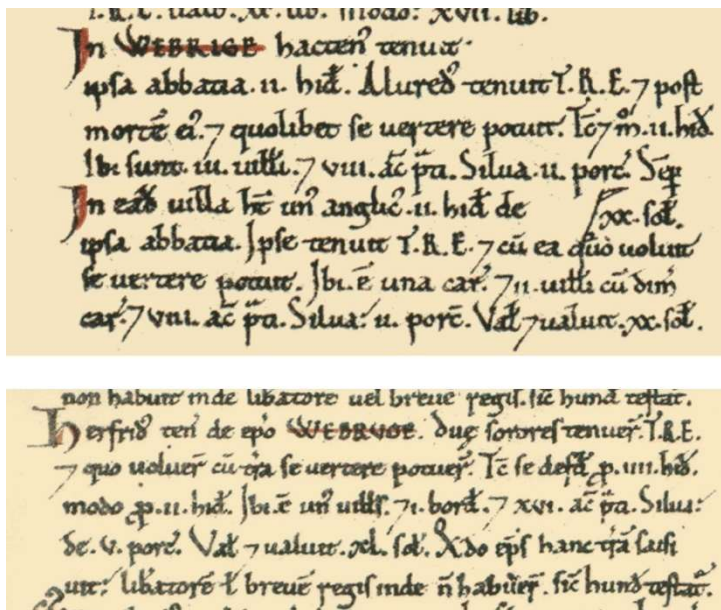 T.R.E. ualb̃. xx. lib. modo: xvii. lib.
In WEBRIGE hacten᾽ tenuit
ipsa abbatia. ii. hid̃. Alured᾽ tenuit T.R.E. ⁊ post
mortẽ ei᾽. ⁊ quolibet se uertere potuit. Tc̃ ⁊ m̊. ii. hid̃.
Ibi sunt. iii. uilli. ⁊ viii. ac̃ p̃ti. Silua. ii. porc̃. Sẽp
In ead̃ uilla ht̃ un᾽ anglic᾽. ii. hid̃ de xx. sol̃.
ipsa abbatia. Ipse tenuit T.R.E. ⁊ cũ ea quo uoluit
se uertere potuit. Ibi. ẽ una car̃. ⁊ ii. uilli cũ dim̃
car̃. ⁊ viii. ac̃ p̃ti. Silua: ii. porc̃. Val̃ ⁊ ualuit. xx. sol̃.
non habuit inde libatorẽ uel breuẽ regis. sic̃ hund̃ testat᾽.
Herfrid᾽ ten̄ de ep̃o WEBRUGE. duę sorores tenuer̃. T.R.E.
⁊ quo uoluer̃ cũ t̃ra se uertere potuer̃. Tc̃ se defd̃ ꝓ. iiii. hid̃.
modo ꝓ. ii. hid̃. Ibi. ẽ un᾽ uill̃s. ⁊ i. bord̃. ⁊ xvi. ac̃ p̃ti. Silua:
de. v. porc̃. Val̃ ⁊ ualuit. xl. sol̃. Q̃do ep̃s hanc t̃rã saisi
uit: libatorẽ ł breuẽ regis inde ñ habuer̃. sic̃ hund̃ testat᾽.